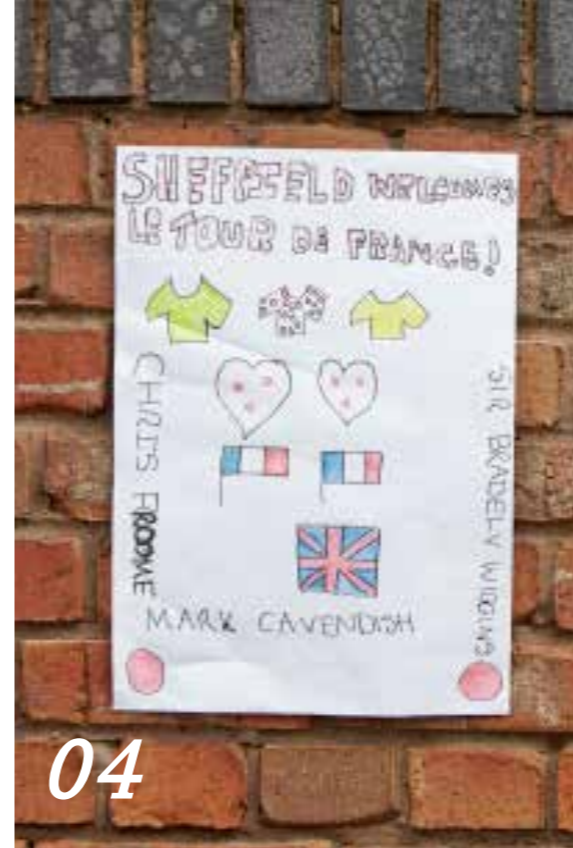 SHEFFIELD WELCOMES
LE TOUR DE FRANCE!
CHRIS FROOME
SIR BRADELY WIGGINS
MARK CAVENDISH
04